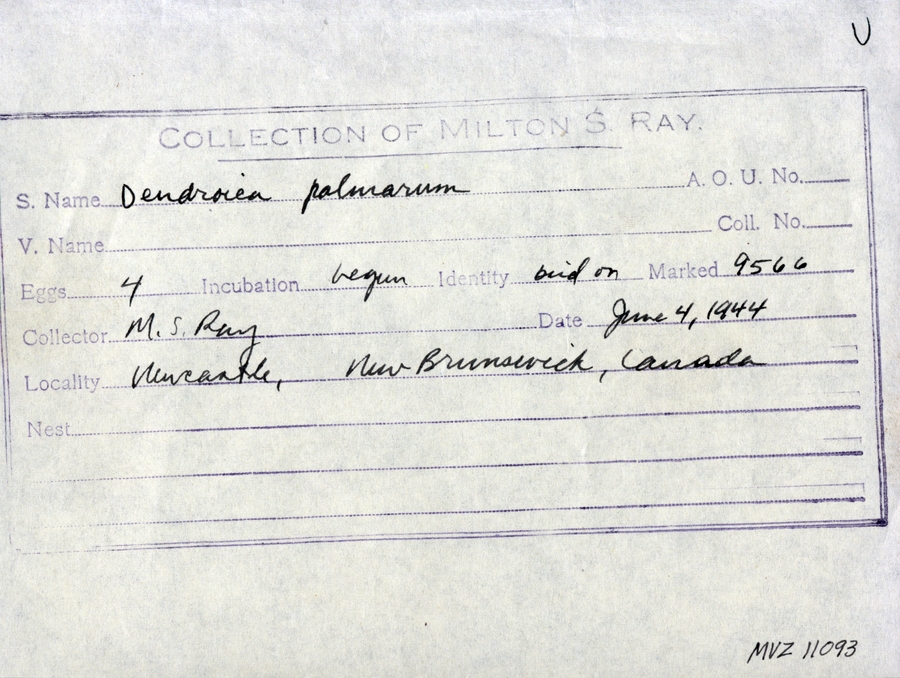 U
COLLECTION OF MILTON S. RAY.
S. Name Dendroica palmarum A. O. U. No.
V. Name Coll. No.
Eggs 4 Incubation begun Identity bird on Marked 9566
Collector M. S. Ray Date June 4, 1944
Locality Newcastle, New Brunswick, Canada
Nest
MVZ 11093